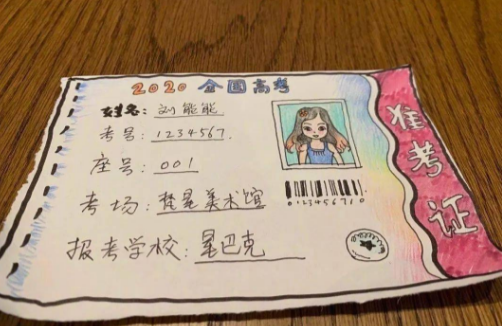 2020 全国高考
姓名: 刘能能
考号: 1234567.
座号: 001
考场: 梵星美术馆
报考学校: 星巴克
准考证